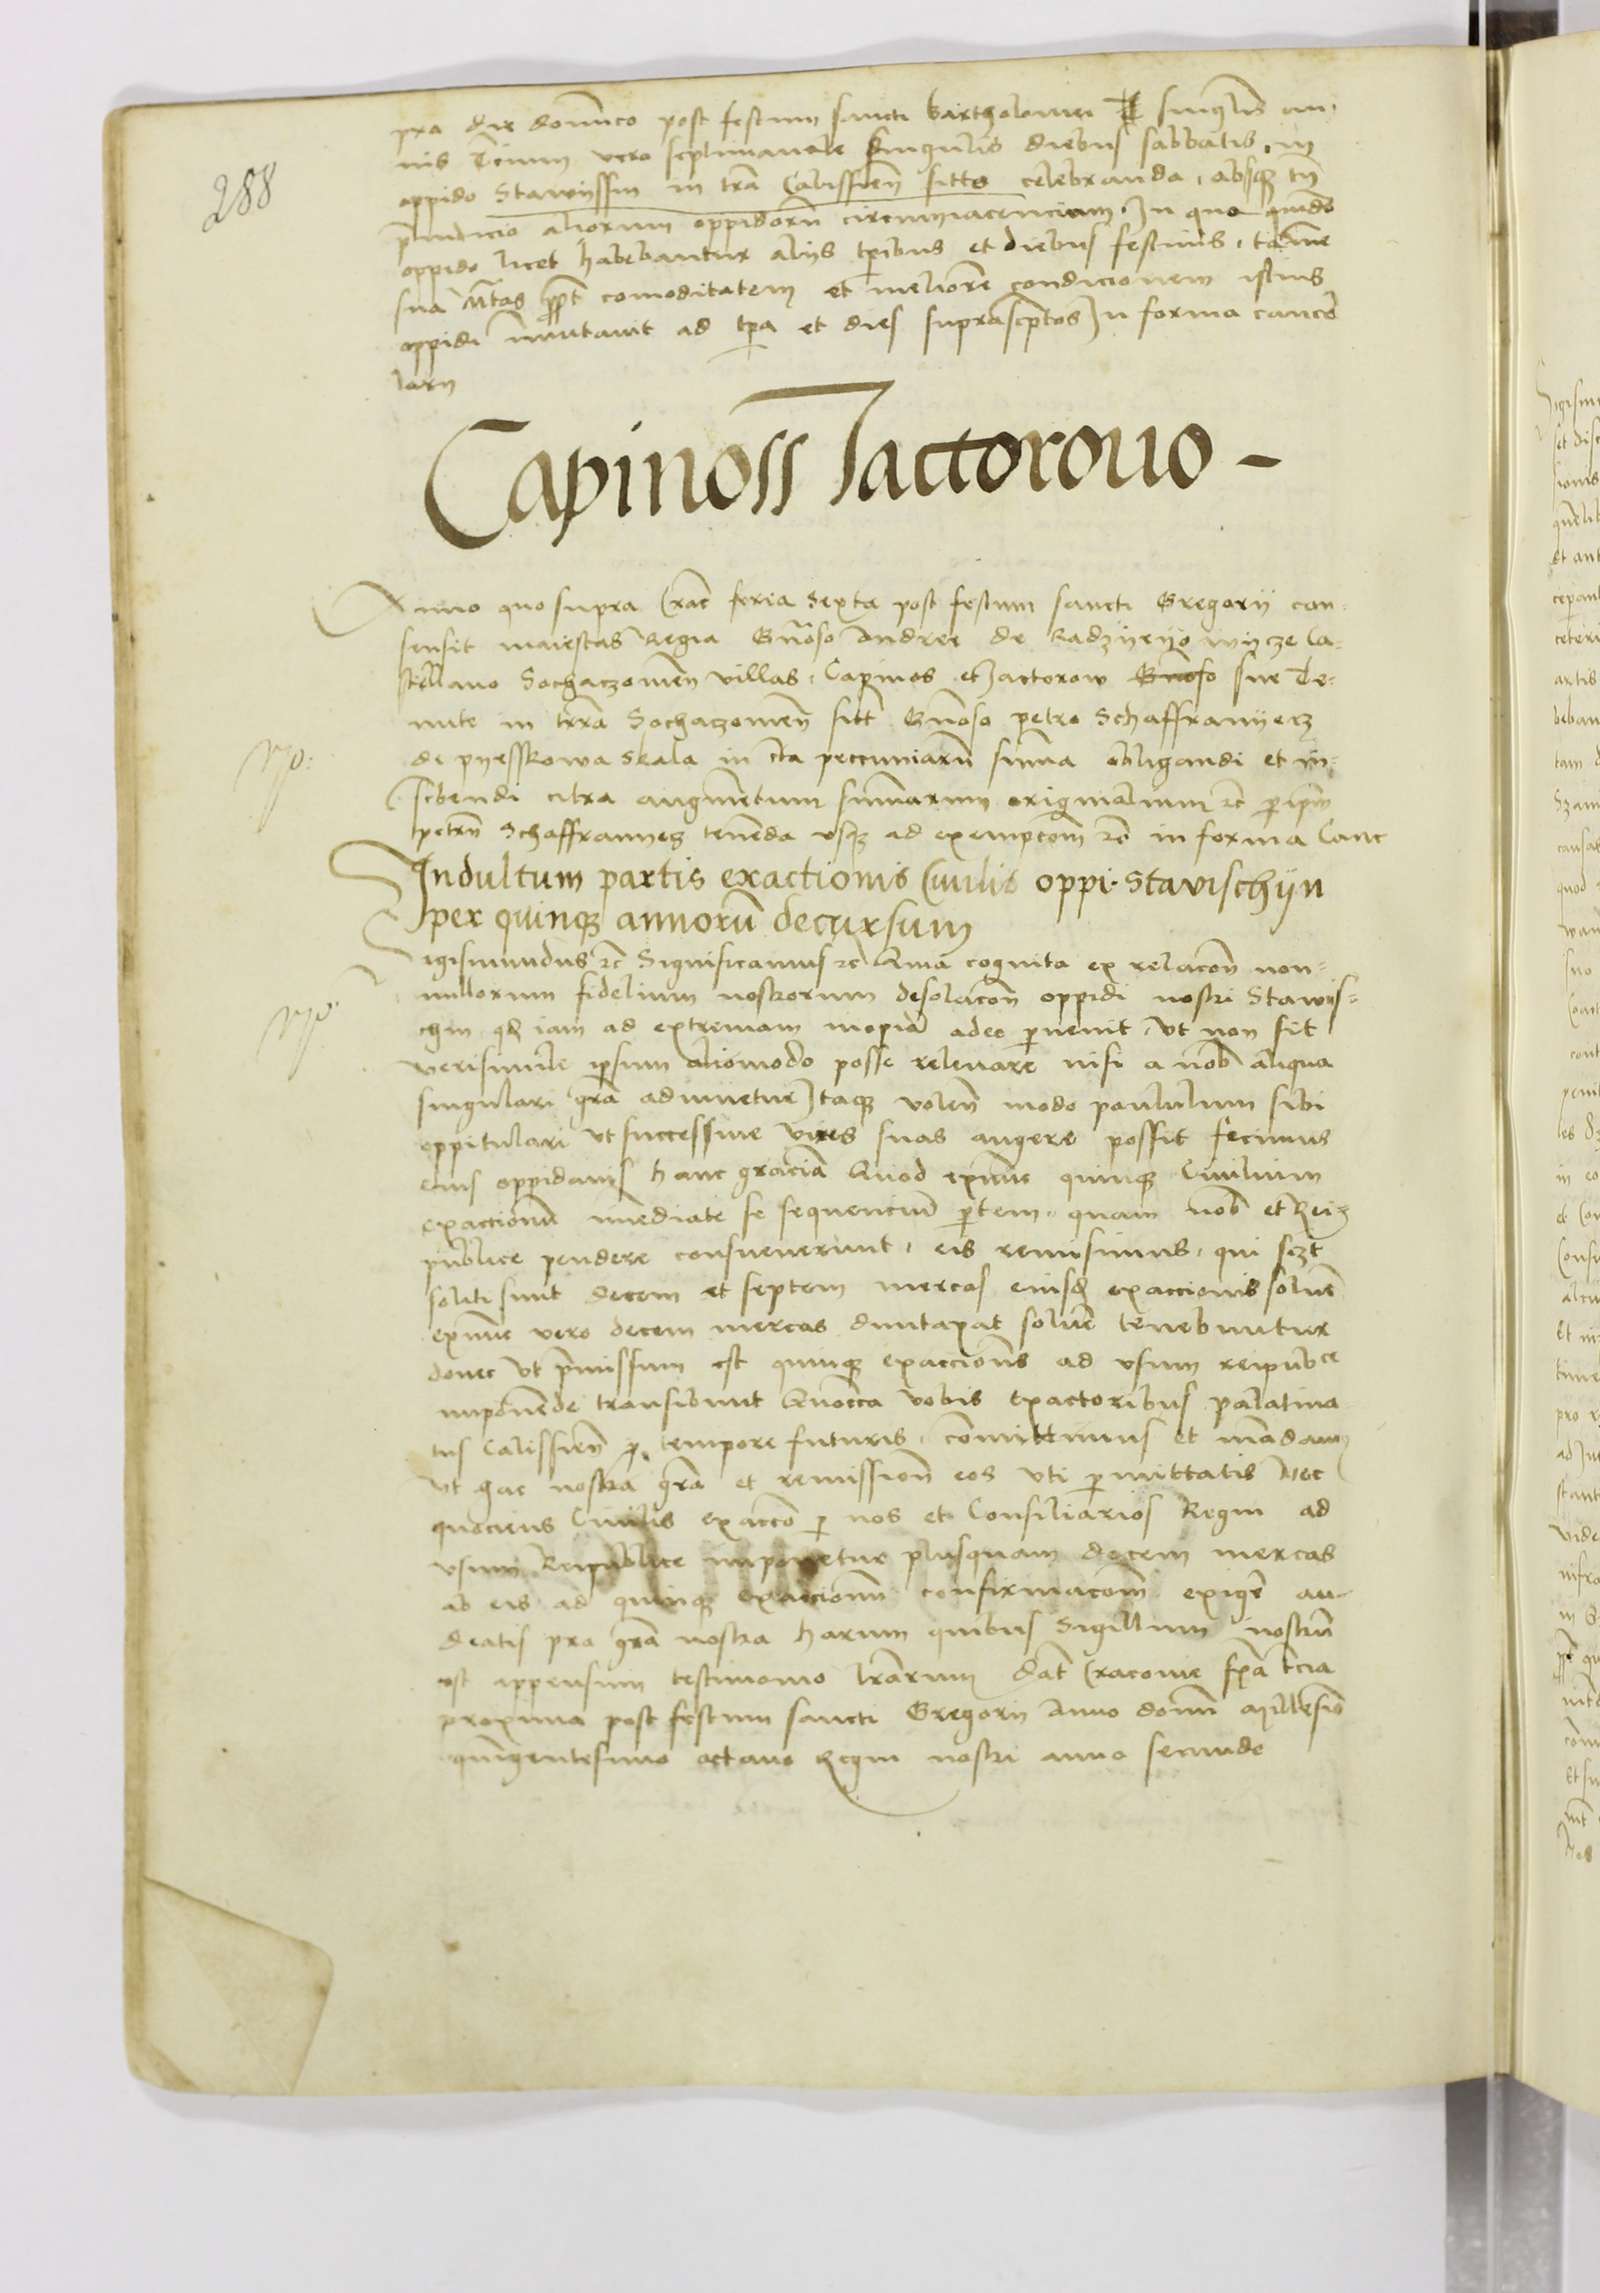 288
pro die domico post festum sancti Bartholomei singulis an-
nis Tcium vero septimanale singulis diebus sabbatis, in
oppido Stawyssin in tra Calissien sitto celebranda, absq tn
preiudicio aliorum oppidoru circumiacencium. In quo quidem
oppido licet habebantur alys tpibus et diebus festiuis, tame
sua Mtas ppt comoditatem et meliore condicionem istius
oppidi immutauit ad tpa et dies suprascptos In forma cancel
larij
Capinoss Jactorouo -
Anno quo supra Crac feria sexta post festum sancti Gregorij con-
sensit maiestas Regia Gnoso Andree de Radzyeyo wycze Ca-
stellano Sochaczowien villas, Capinos et Jactorow sue Te-
nute in terra Sochaczowien sitt Gnoso petro Schaffranyecz
de pyesskowa Skala in cta pecuniaru suma obligandi et in-
scbendi citra augmentum summarum originalium etc p ipm
petru Schaffranyecz tenenda vsq ad exempcom etc in forma Canc
Indultum partis exactionis Ciuilis oppi. Stavischijn
per quinq annoru decursum
Sigismundus etc Significamus etc Quia cognita ex relacon non-
nullorum fidelium nostrorum desolacon oppidi nostri Stawis-
chin qd iam ad extremam inopia adeo puenit, vt non sit
verisimile ipsum aliomodo posse releuare nisi a nob aliqua
singulari gra adiuuetur Itaq volen modo paululum sibi
oppitulari vt successiue vires suas augere possit fecimus
eius oppidanis hanc gracia Quod exnunc quinq Ciuilium
exaccionu immediate se sequenciu ptem, quam nob et Rei
publice pendere consueuerunt, eis remisimus, qui
soliti sunt decem et septem mercas eiusd exaccionis solue
exnunc vero decem mercas duntaxat solue tenebuntur
donec vt pmissum est quinq exacciones ad vsum reipubce
imponende transibunt Quocca vobis exactoribus palatina
tus Calissien p tempore futuris, comittimus et madam
vt hac nostra gra et remission eos vti pmittatis Nec
quociens Ciuilis exacco p nos et Consiliarios Regni ad
vsum Reipublice imponetur plusquam decem mercas
ab eis ad quinq exaccionu confirmacom exige au-
deatis pro gra nostra harum quibus Sigillum nostru
est appensum testimonio lrarum Dat Cracouie fia tcia
proxima post festum sancti Gregorij Anno domi Millesio
quingentesimo octauo Regni nostri anno secundo